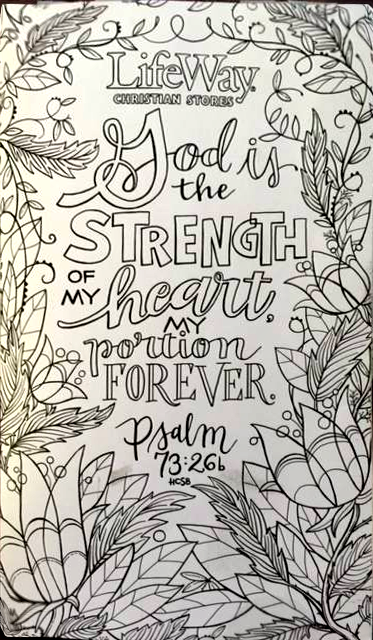 LifeWay
CHRISTIAN STORES
God is
the
STRENGTH
OF
MY heart,
MY
portion
FOREVER.
Psalm
73:26b
HCSB